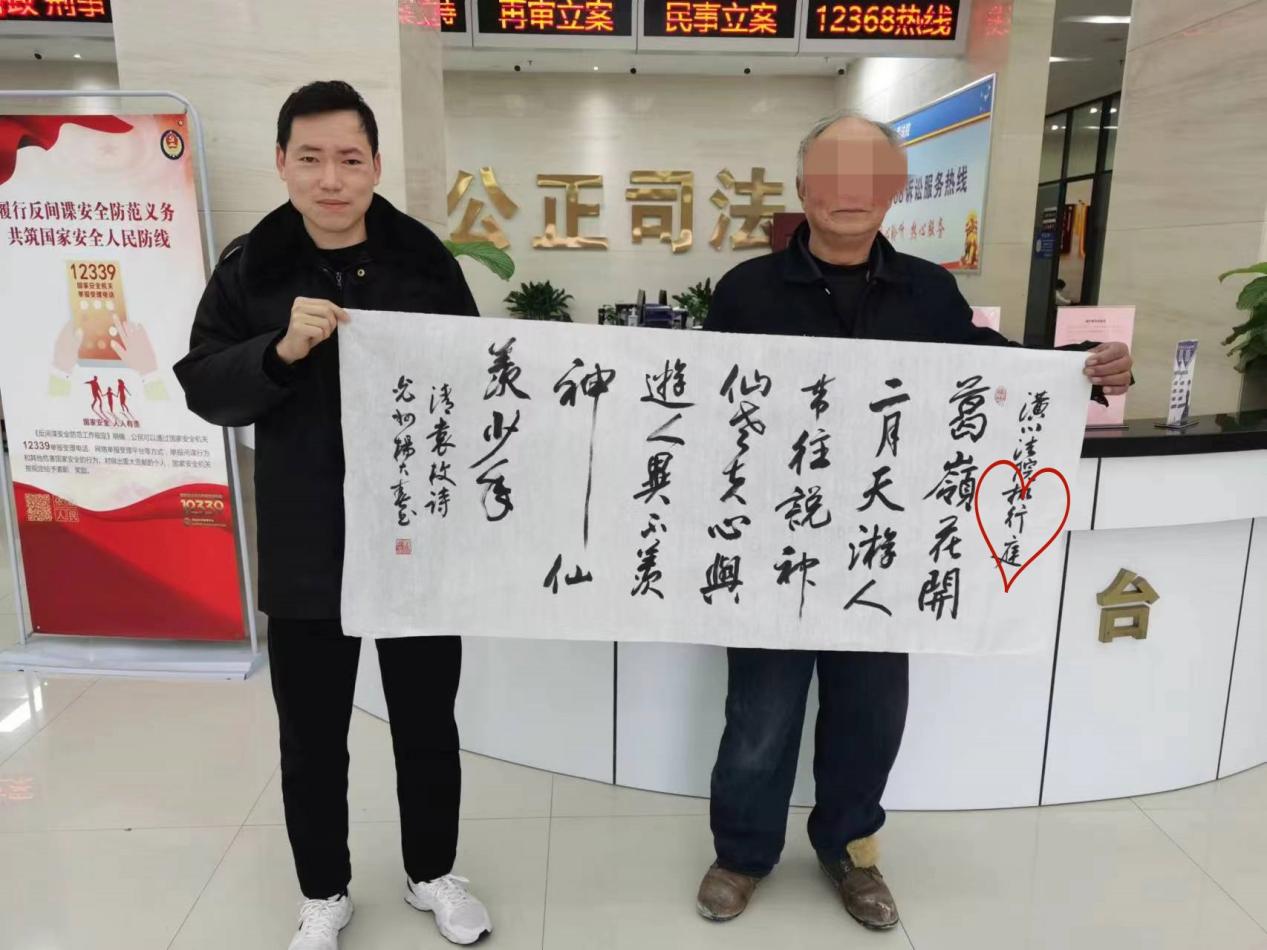 政 刑事
再审立案
民事立案
12368热线
履行反间谍安全防范义务
共筑国家安全人民防线
12339
国家安全机关
举报受理电话
国家安全 人人有责
《反间谍安全防范工作规定》明确,公民可以通过国家安全机关
12339举报受理电话、网络举报受理平台等方式,举报间谍行为
和其他危害国家安全的行为。对做出重大贡献的个人,国家安全机关
按规定给予表彰、奖励。
公正司法
诉讼服务热线
热心服务
潢川法院执行庭
葛嶺花開
二月天游人
来往說神
仙老夫心與
遊人異不羨
神仙
羨少年
清袁枚诗
光州楊大壽书
台